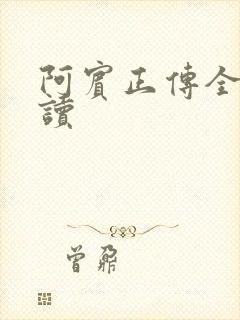 阿賓正傳全
讀
曾鼐